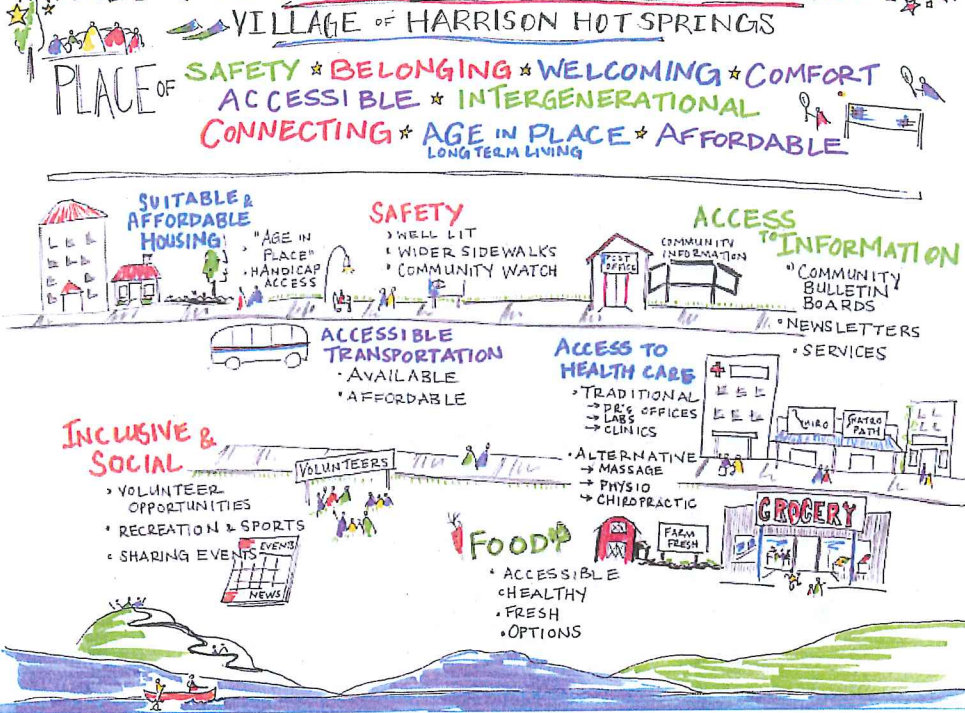 VILLAGE OF HARRISON HOT SPRINGS
PLACE OF
SAFETY * BELONGING * WELCOMING * COMFORT
ACCESSIBLE * INTERGENERATIONAL
CONNECTING * AGE IN PLACE * AFFORDABLE
LONG TERM LIVING
SUITABLE &
AFFORDABLE
HOUSING
"AGE IN
PLACE"
• HANDICAP
ACCESS
SAFETY
• WELL LIT
• WIDER SIDEWALKS
• COMMUNITY WATCH
POST
OFFICE
COMMUNITY
INFORMATION
ACCESS
TO INFORMATION
• COMMUNITY
BULLETIN
BOARDS
• NEWSLETTERS
• SERVICES
ACCESSIBLE
TRANSPORTATION
• AVAILABLE
• AFFORDABLE
ACCESS TO
HEALTH CARE
• TRADITIONAL
→ DR'S OFFICES
→ LABS
→ CLINICS
• ALTERNATIVE
→ MASSAGE
→ PHYSIO
→ CHIROPRACTIC
CHIRO
NATRO
PATH
INCLUSIVE &
SOCIAL
• VOLUNTEER
OPPORTUNITIES
• RECREATION & SPORTS
• SHARING EVENTS
VOLUNTEERS
EVENTS
NEWS
FOOD
• ACCESSIBLE
• HEALTHY
• FRESH
• OPTIONS
FARM
FRESH
GROCERY